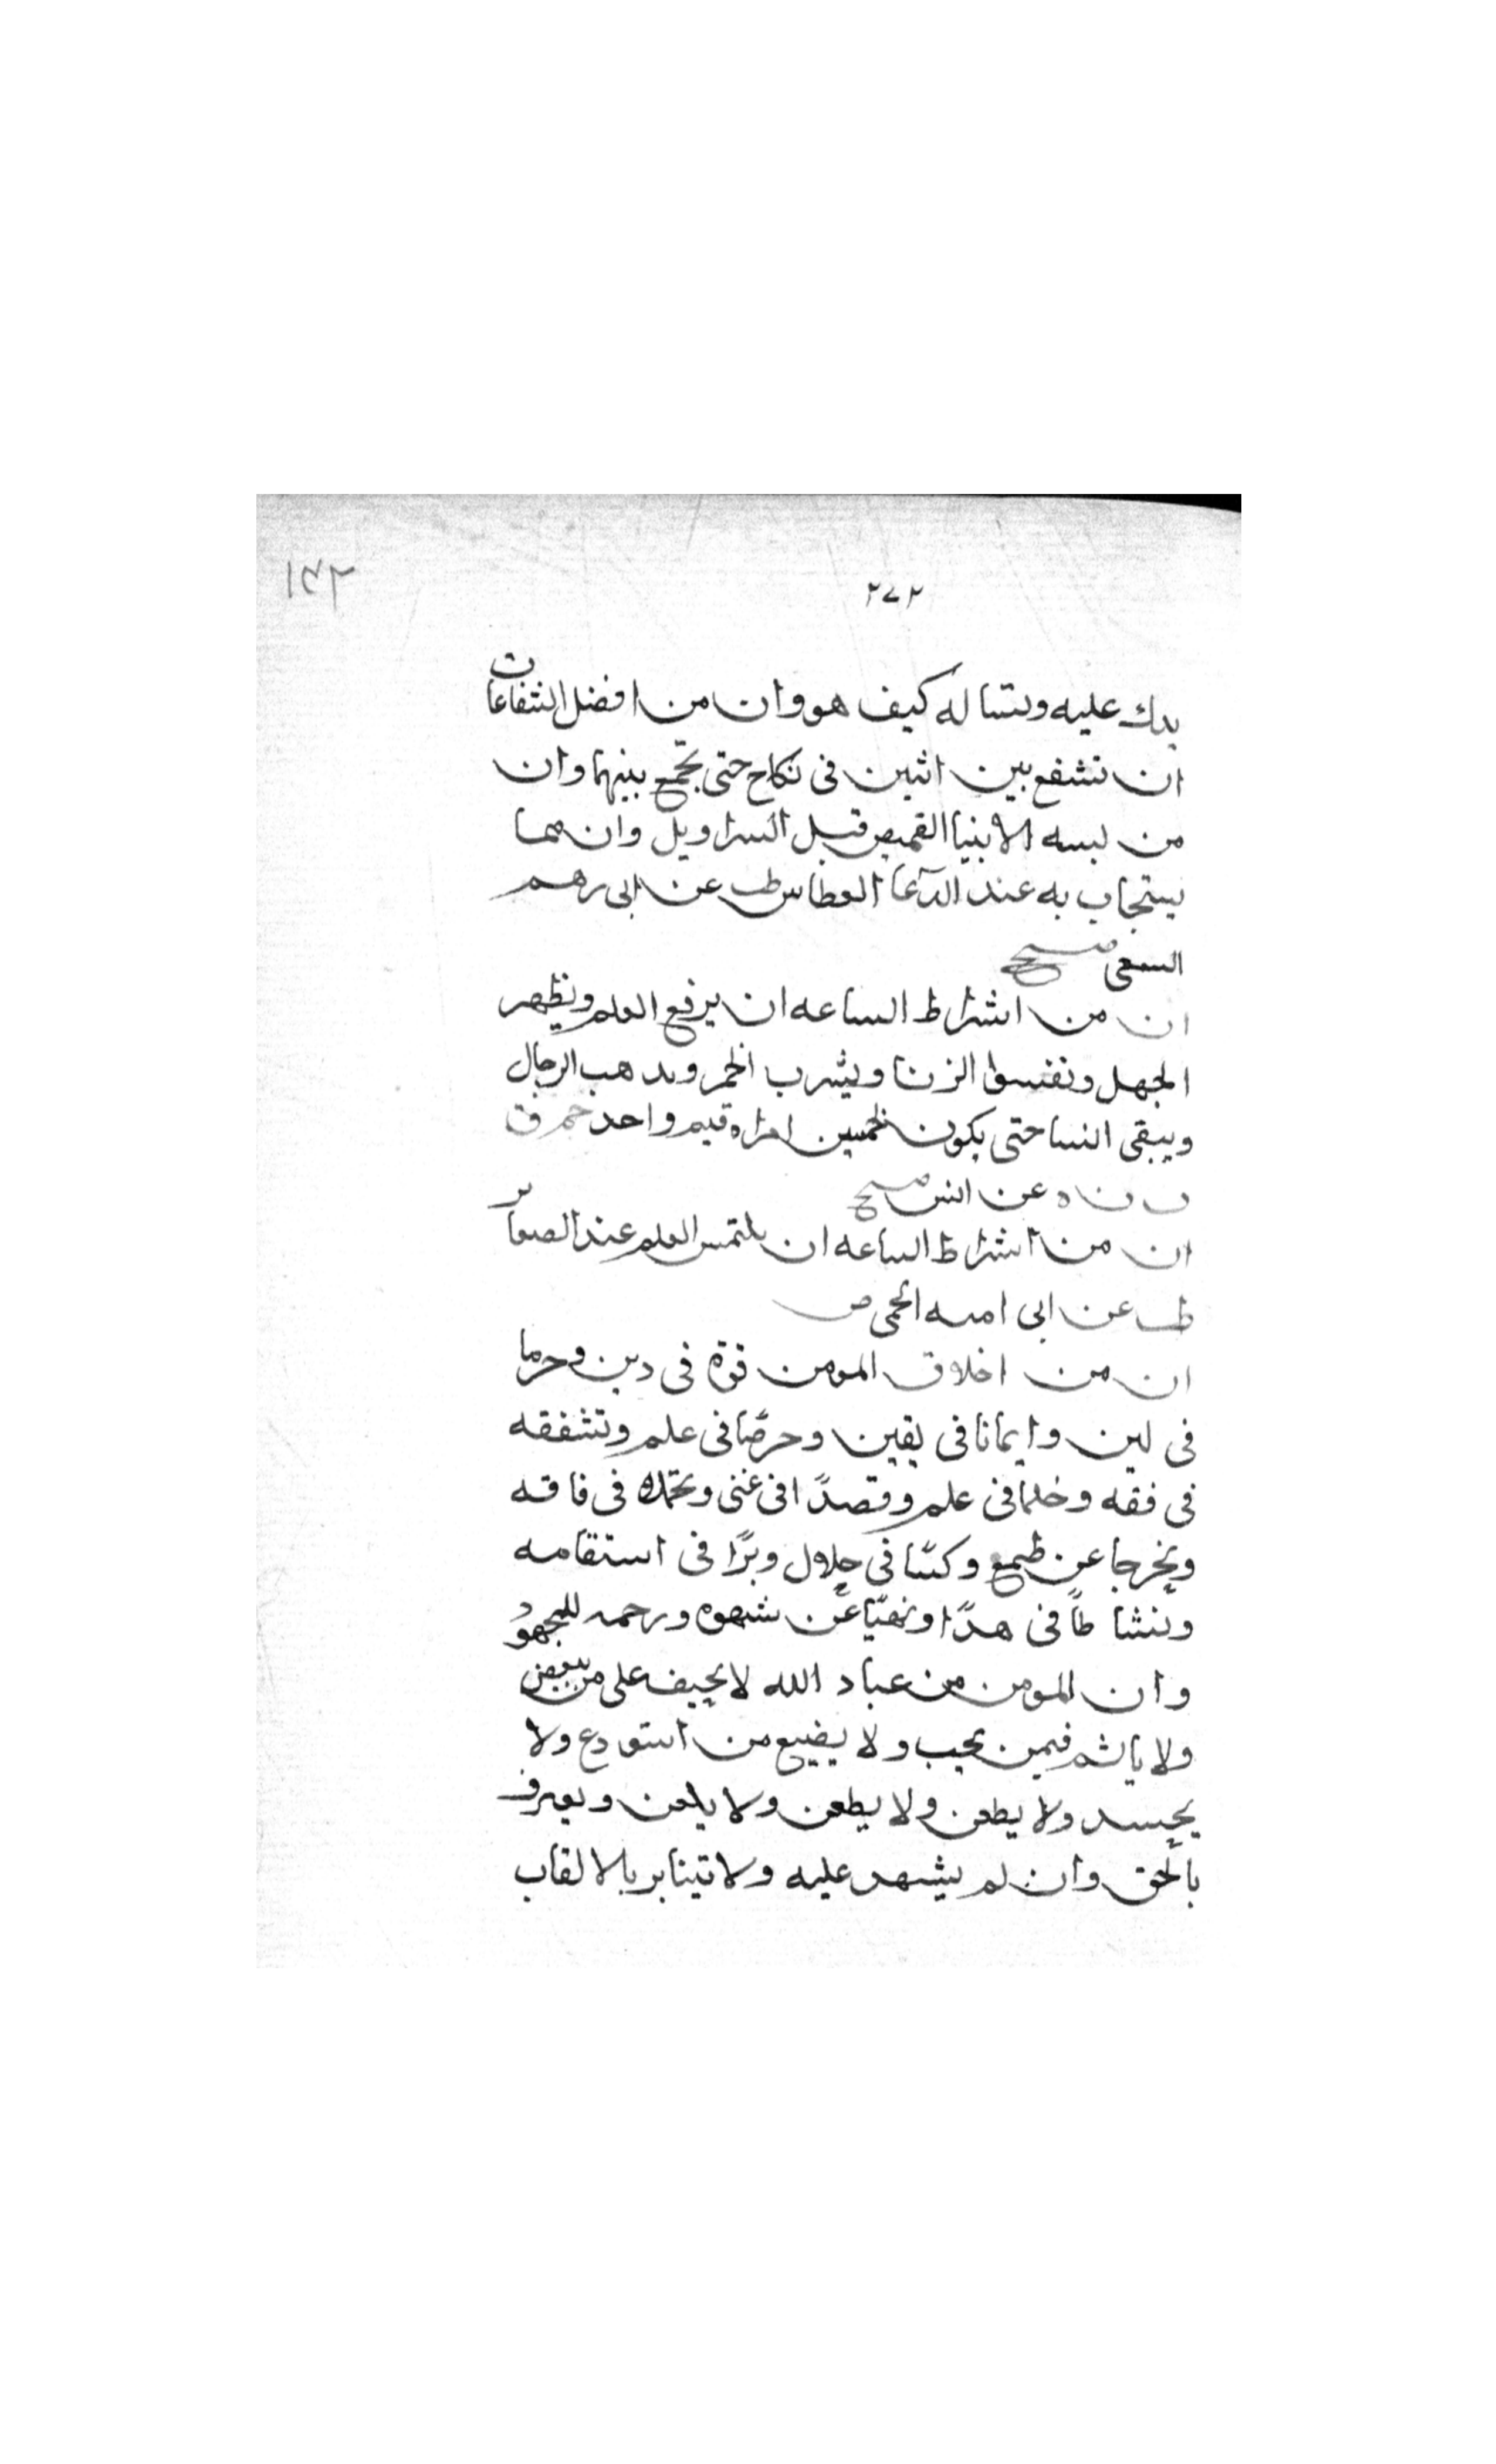 ١٣٢
٢٧٢
يدك عليه وتساله كيف هو وان من افضل الشفاعات
ان تشفع بين اثنين فى نكاح حتى تجمع بينهما وان
من لبسه الانبيا القميص قبل السراويل وان مما
يستجاب به عند الدعا العطاس طب عن ابى رهم
السمعى صح
ان من اشراط الساعه ان يرفع العلم ويظهر
الجهل وتفشوا الزنا ويشرب الخمر ويذهب الرجال
ويبقى النسا حتى يكون لخمسين امراه قيم واحد حم ق
ت ن ه عن انس صح
ان من اشراط الساعه ان يلتمس العلم عند الصغار
طب عن ابى اميه الجمحى ض
ان من اخلاق المومن قوة فى دين وحزما
فى لين وايمانا فى يقين وحرصًا فى علم وشفقه
فى فقه وحلما فى علم وقصدًا فى غنى وتجملا فى فاقه
وتحرجا عن طمع وكسبًا فى حلال وبرًّا فى استقامه
ونشاطاً فى هدًا ونهيًا عن شهوه ورحمه للمجهود
وان المومن من عباد الله لا يحيف على من يبغض
ولا ياثم فيمن يحب ولا يضيع من استودع ولا
يحسد ولا يطعن ولا يطعن ولا يلعن ويعترف
بالحق وان لم يشهد عليه ولا يتنابز بالالقاب